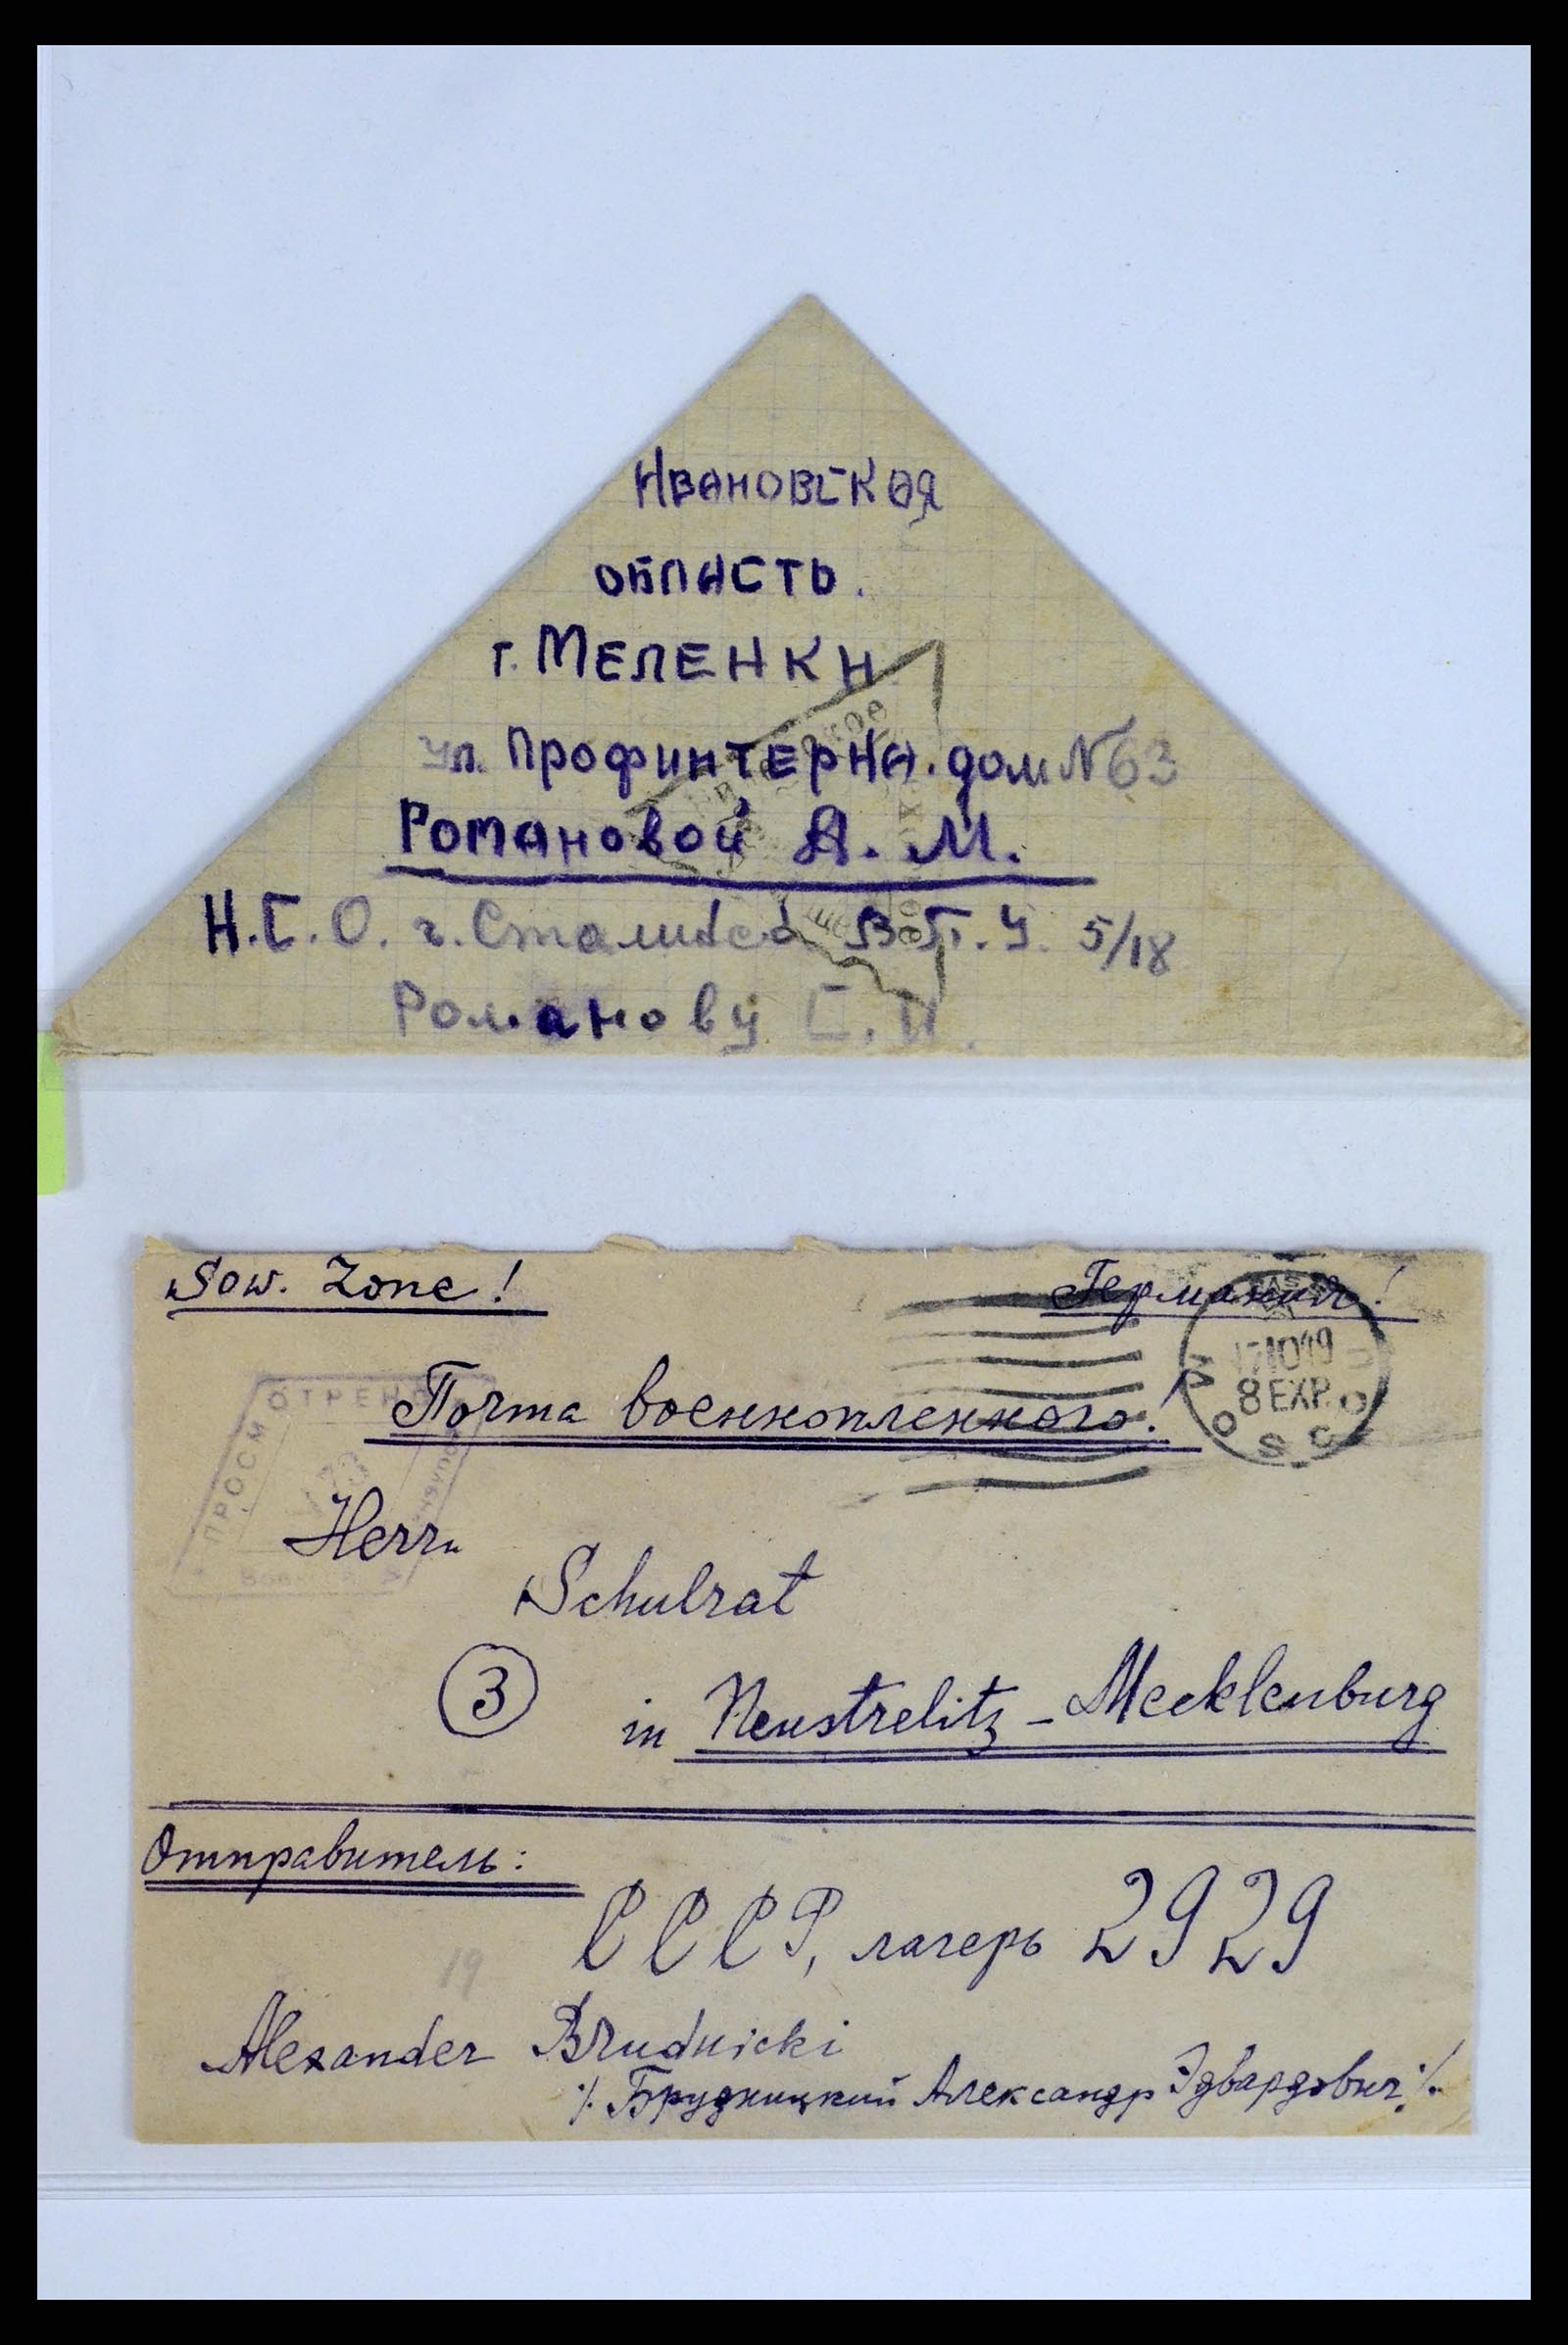 Ивановская
область.
г. Меленки
ул. Профинтерна. дом №63
Романовой А. М.
Н.С.О. г. Сталинск В.П.У. 5/18
Романову С. И.
Sow. Zone!
Германия!
Почта военнопленного!
ПРОСМОТРЕНО
MOSCOU
171049
8 EXP.
Herrn
Schulrat
3
in Neustrelitz - Mecklenburg
Отправитель:
СССР, лагерь 2929
19
Alexander Brudnicki
./. Брудницкий Александр Эдвардович ./.